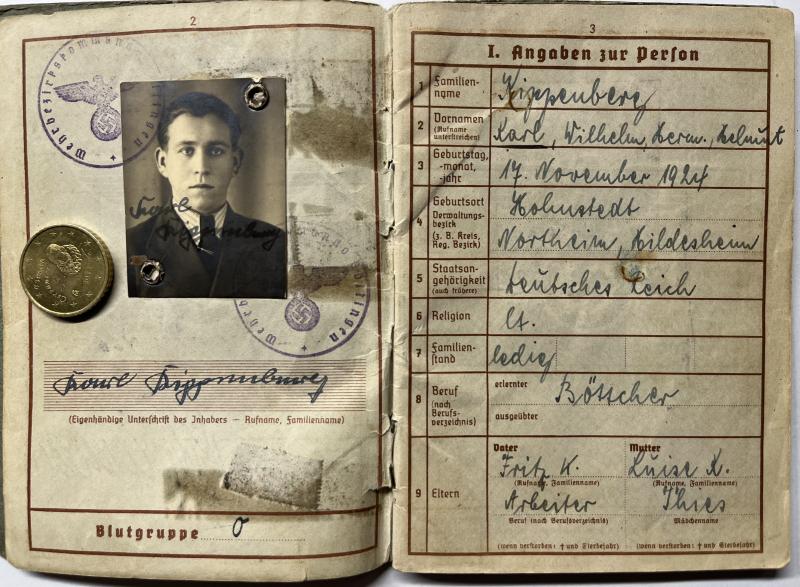 2
Wehrbezirkskommando
Karl
Kippenberg
Karl Kippenberg
(Eigenhändige Unterschrift des Inhabers — Rufname, Familienname)
Blutgruppe O
3
I. Angaben zur Person
1 Familien-
name
Kippenberg
2 Vornamen
(Rufname
unterstreichen)
Karl, Wilhelm, Herm., Helmut
3 Geburtstag,
-monat,
-jahr
17. November 1924
4 Geburtsort
Verwaltungs-
bezirk
(z. B. Kreis,
Reg. Bezirk)
Hohnstedt
Northeim, Hildesheim
5 Staatsan-
gehörigkeit
(auch frühere)
Deutsches Reich
6 Religion
lt.
7 Familien-
stand
ledig
8 Beruf
(nach
Berufs-
verzeichnis)
erlernter
Böttcher
ausgeübter
9 Eltern
Vater Mutter
Fritz K. Luise K.
(Rufname, Familienname) (Rufname, Familienname)
Arbeiter Thies
Beruf (nach Berufsverzeichnis) Mädchenname
(wenn verstorben: † und Sterbejahr) (wenn verstorben: † und Sterbejahr)